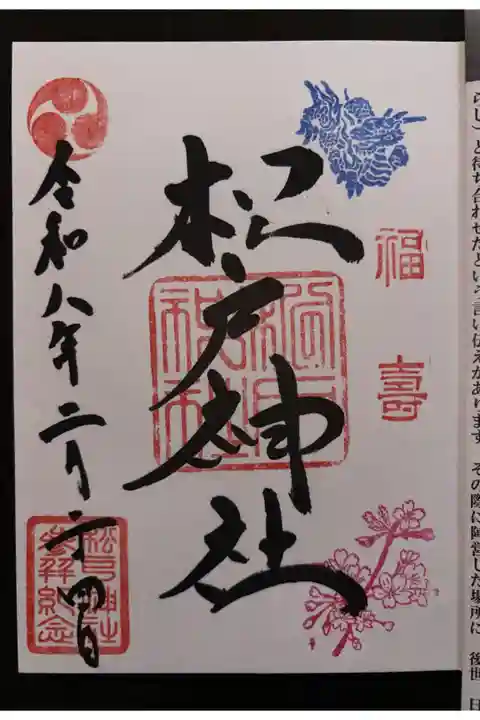 らし）と待ち合わせたという言い伝えがあります。その際に陣営した場所に、後世
福壽
松戸神社
松戸
神社
令和八年二月二十四日
松戸神社
参拜紀念